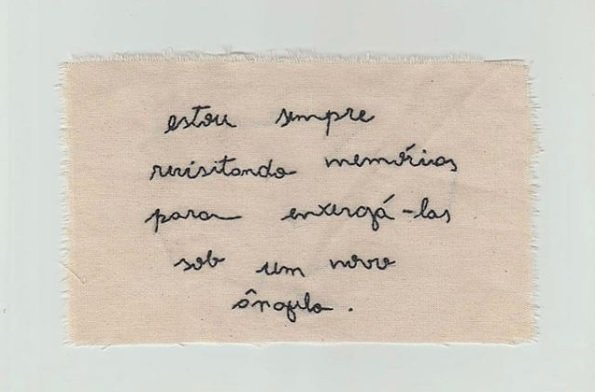 estou sempre
revisitando memórias
para enxergá-las
sob um novo
ângulo.